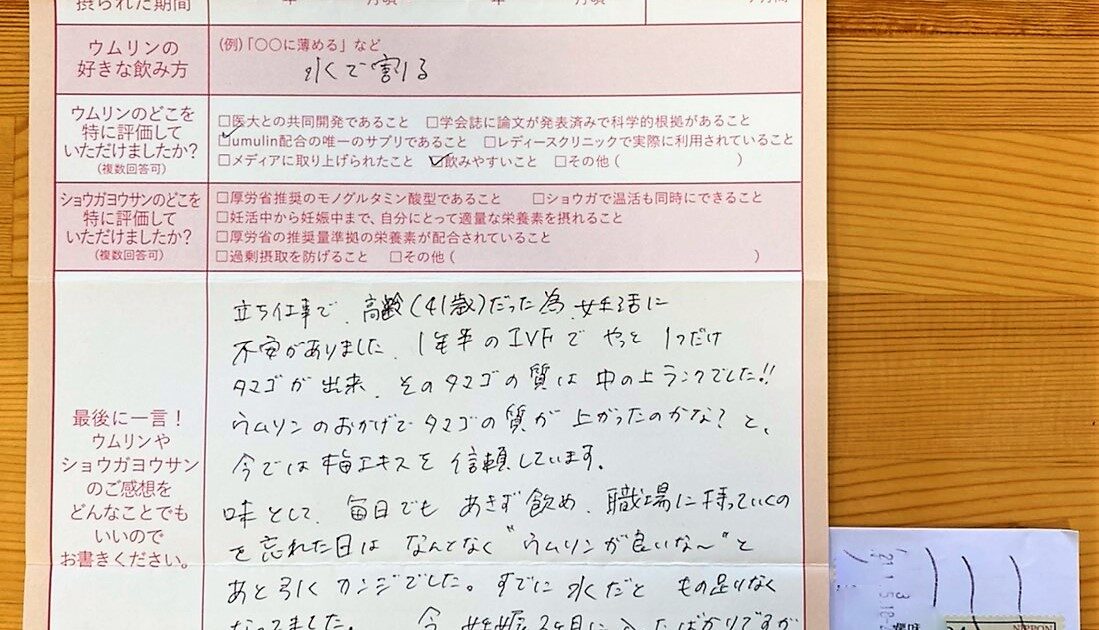 摂られた期間
年
月頃
年
月頃
ヶ月間
ウムリンの
好きな飲み方
(例)「○○に薄める」など
水で割る
ウムリンのどこを
特に評価して
いただけましたか?
(複数回答可)
□医大との共同開発であること □学会誌に論文が発表済みで科学的根拠があること
☑umulin配合の唯一のサプリであること □レディースクリニックで実際に利用されていること
□メディアに取り上げられたこと ☑飲みやすいこと □その他( )
ショウガヨウサンのどこを
特に評価して
いただけましたか?
(複数回答可)
□厚労省推奨のモノグルタミン酸型であること □ショウガで温活も同時にできること
□妊活中から妊娠中まで、自分にとって適量な栄養素を摂れること
□厚労省の推奨量準拠の栄養素が配合されていること
□過剰摂取を防げること □その他( )
最後に一言!
ウムリンや
ショウガヨウサン
のご感想を
どんなことでも
いいので
お書きください。
立ち仕事で、高齢(41歳)だった為、妊活に
不安がありました。1年半のIVFで やっと 1つだけ
タマゴが出来、そのタマゴの質は中の上ランクでした!!
ウムリンのおかげでタマゴの質が上がったのかな?と、
今では梅エキスを信頼しています。
味として、毎日でもあきず飲め、職場に持っていくの
を忘れた日は なんとなく"ウムリンが良いな〜"と
あと引くカンジでした。すでに水だと もの足りなく
なってました。 今、妊娠2ヶ月に入ったばかりですが
NIPPON